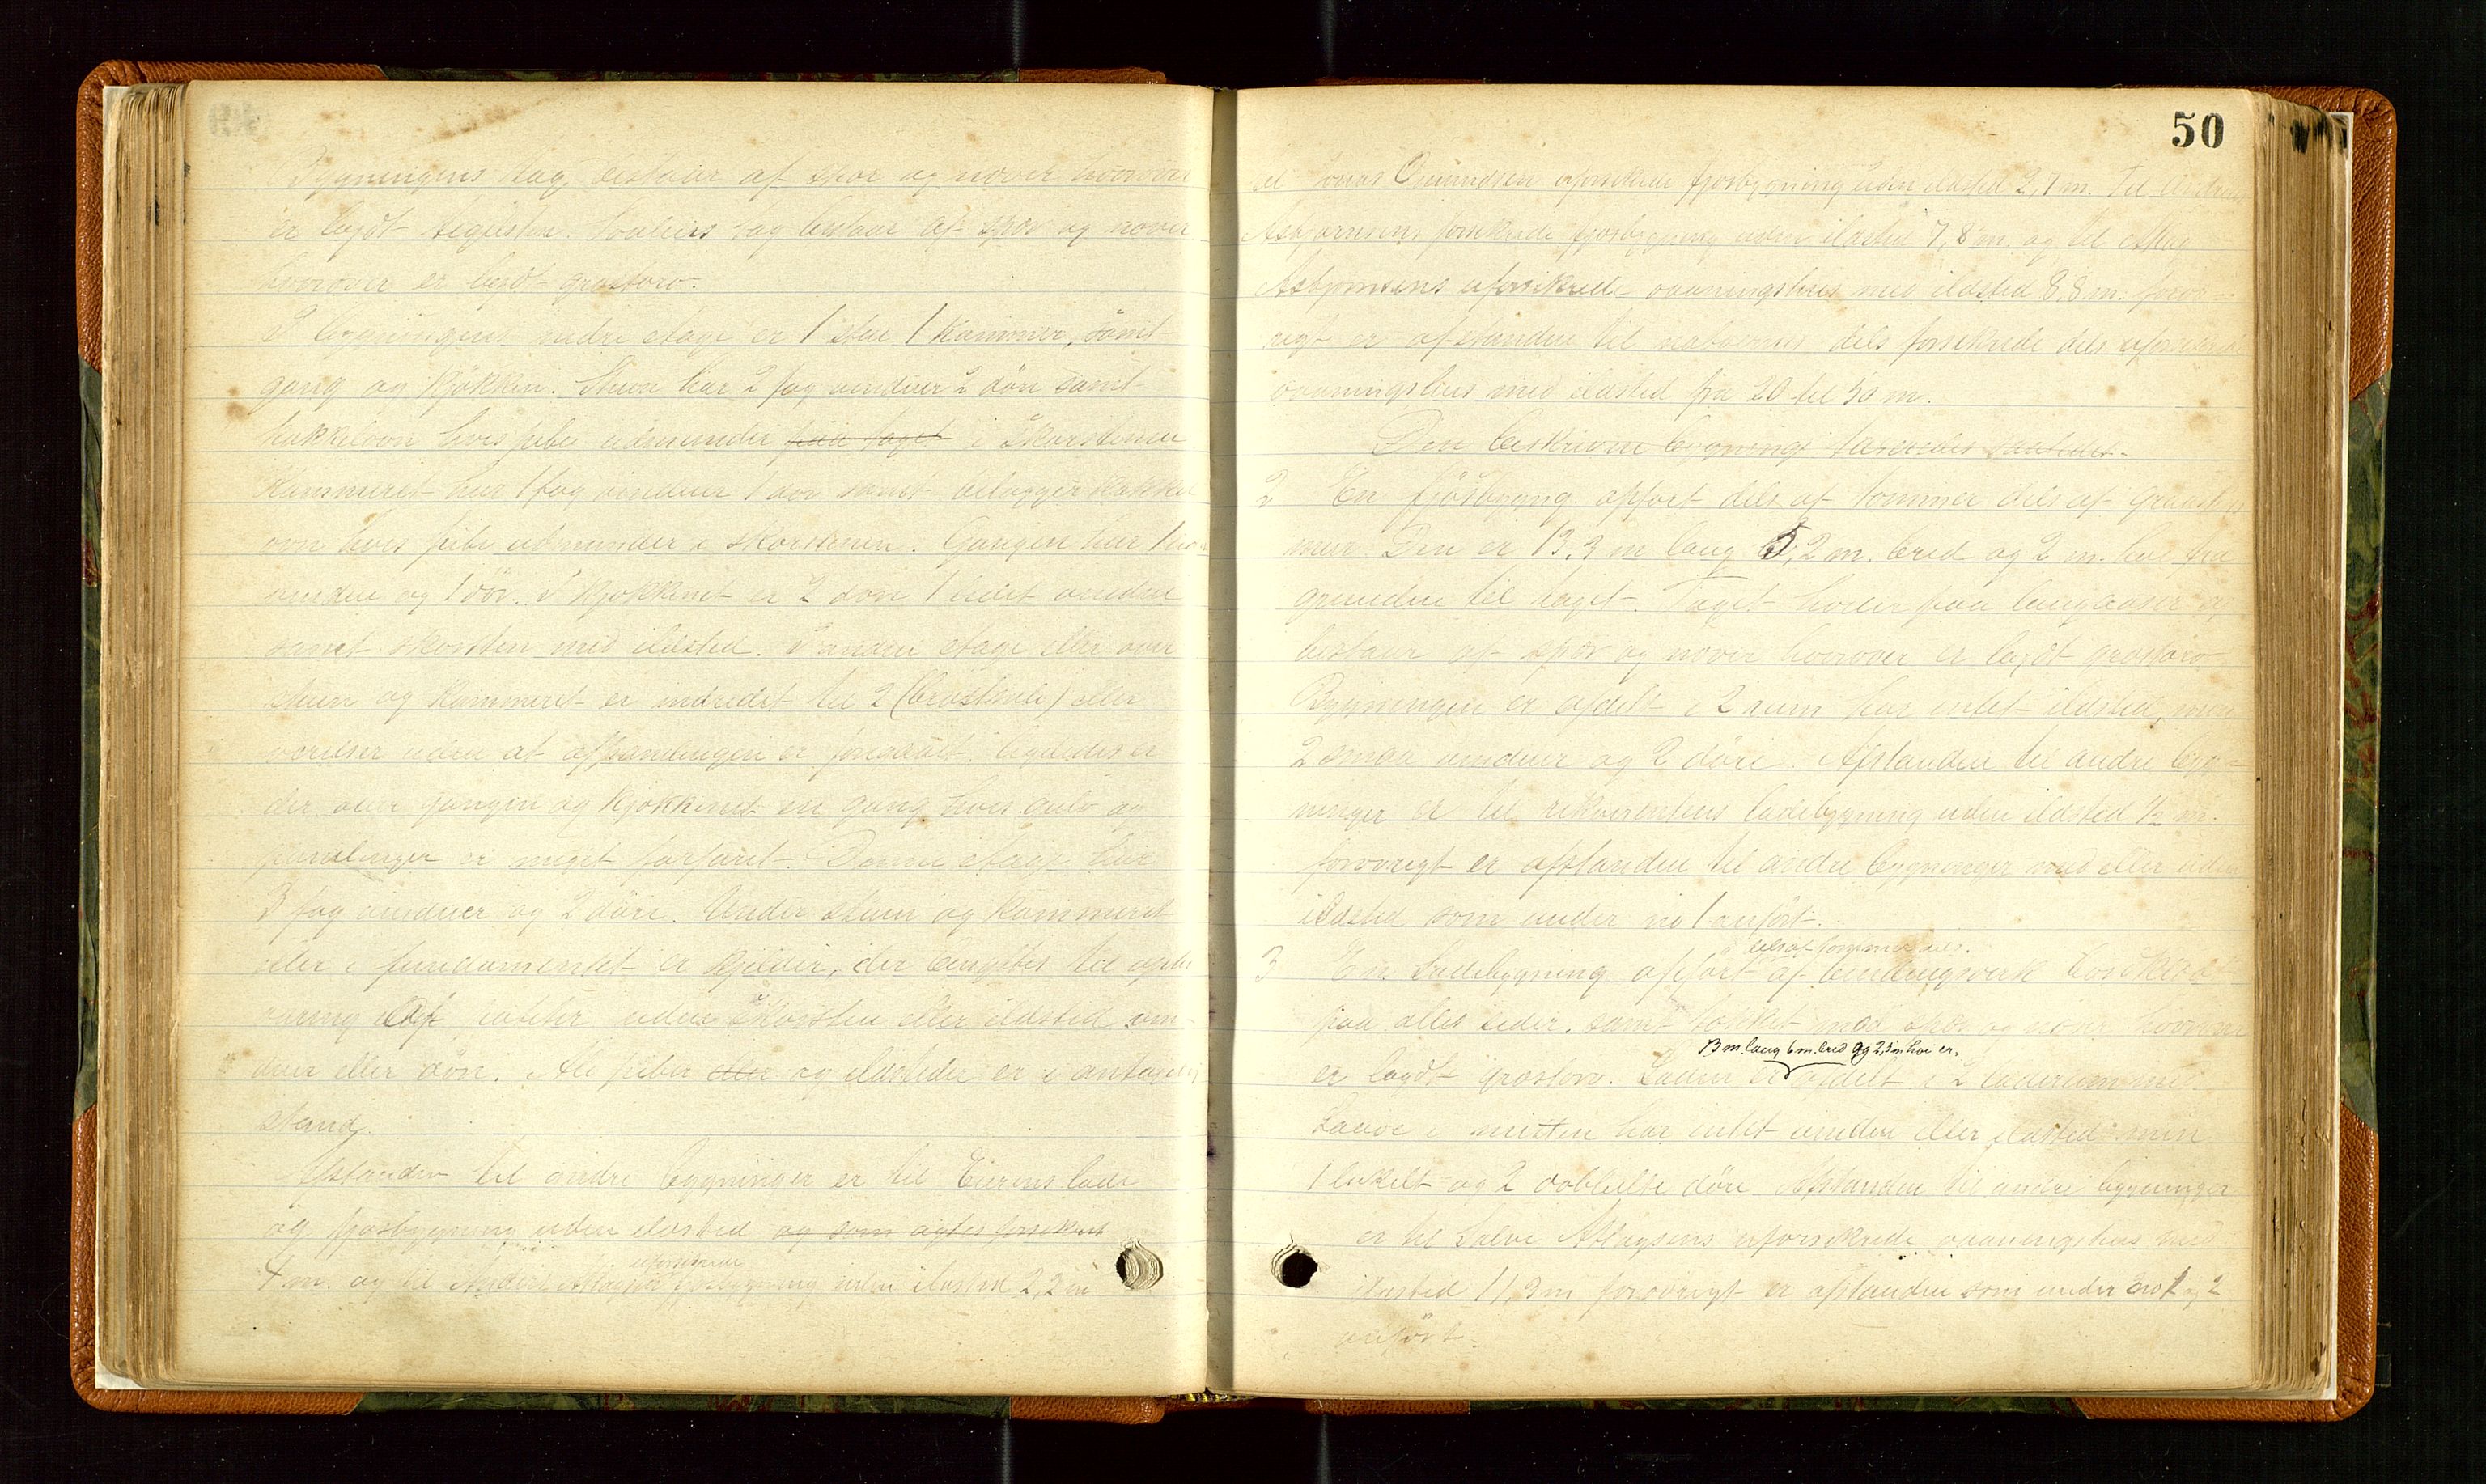 Bygningens tag bestaar af spor og nover hvorover
er lagdt teglsten. tag bestaar af spor og nover
hvorover er lagdt græstorv.
I bygningens nedre etage er 1 stue 1 Kammer, samt
gang og Kjökken. Stuen har 2 fag vinduer 2 döre samt
kakkelovn hvis pibe udmunder i Skorstenen
Kammeret har 1 fag vinduer 1 dör samt kakkel
ovn hvis pibe udmunder i skorstenen. Gangen har 1
vindue og 1 dör. I kjøkkenet er 2 döre 1 vindue
samt skorsten med ildsted. I anden etage eller over
stuen og Kammeret er indredet til 2 eller
værelser uden at er ligeledes er
der over gangen og kjøkkenet en gang hvis gulv og
panelinger er meget forfaret. Denne etage har
3 fag vinduer og 2 döre. Under stuen og Kammeret
eller i fundamentet er kjelder, der benyttes til opbe
varing af poteter uden skorsten eller ildsted vin-
duer eller döre. Ale piber og ildsteder er i antagelig
stand.
Afstanden til andre bygninger er til Eierens lade
og fjosbygning uden ildsted og som agtes forsikret
4 m. og til Anders Atlagsens uforsikrede fjosbygning uden ildsted 2,2 m
50
til Jonas uforsikrede fjosbygning uden ildsted 2,1 m. til
Asbjørnsens forsikrede fjosbygning uden ildsted 7,8 m. og til Atlag
Asbjørnsens uforsikrede vaaningshus med ildsted 8,8 m. forov-
rigt er afstanden til naboernes dels forsikrede dels uforsikrede
vaaningshus med ildsted fra 20 til 50 m.
Den beskrevne bygning taxeredes saaledes.
2 En fjösbygning opfört dels af tømmer dels af graasteins
mur. Den er 13,3 m lang 5,2 m. bred og 2 m. høi fra
grunden til taget. Taget hviler paa langaaser og
bestaar af spor og nover hvorover er lagdt græstorv
Bygningen er afdelt i 2 rum har intet ildsted, men
2 smaa vinduer og 2 döre. Afstanden til andre byg-
ninger er til rekvirentens ladebygning uden ildsted ½ m.
forøvrigt er afstanden til andre bygninger med eller uden
ildsted som under no 1 anfört.
dels af tømmer dels.
3 En Ladebygning opfört af bindingsverk bordklæd
paa alle sider. samt tækket med spor og nover hvorover
13 m. lang 6 m. bred og 2,5 m høi er,
er lagdt græstorv. Laden er afdelt i 2 laderum med
Laave i midten har intet vindue eller ildsted men
1 enkelt og 2 dobbelte döre. Afstanden til andre bygninger
er til Salve Atlagsens uforsikrede vaaningshus med
ildsted 11,3 m forøvrigt er afstanden som under no 1 og 2
anfört.